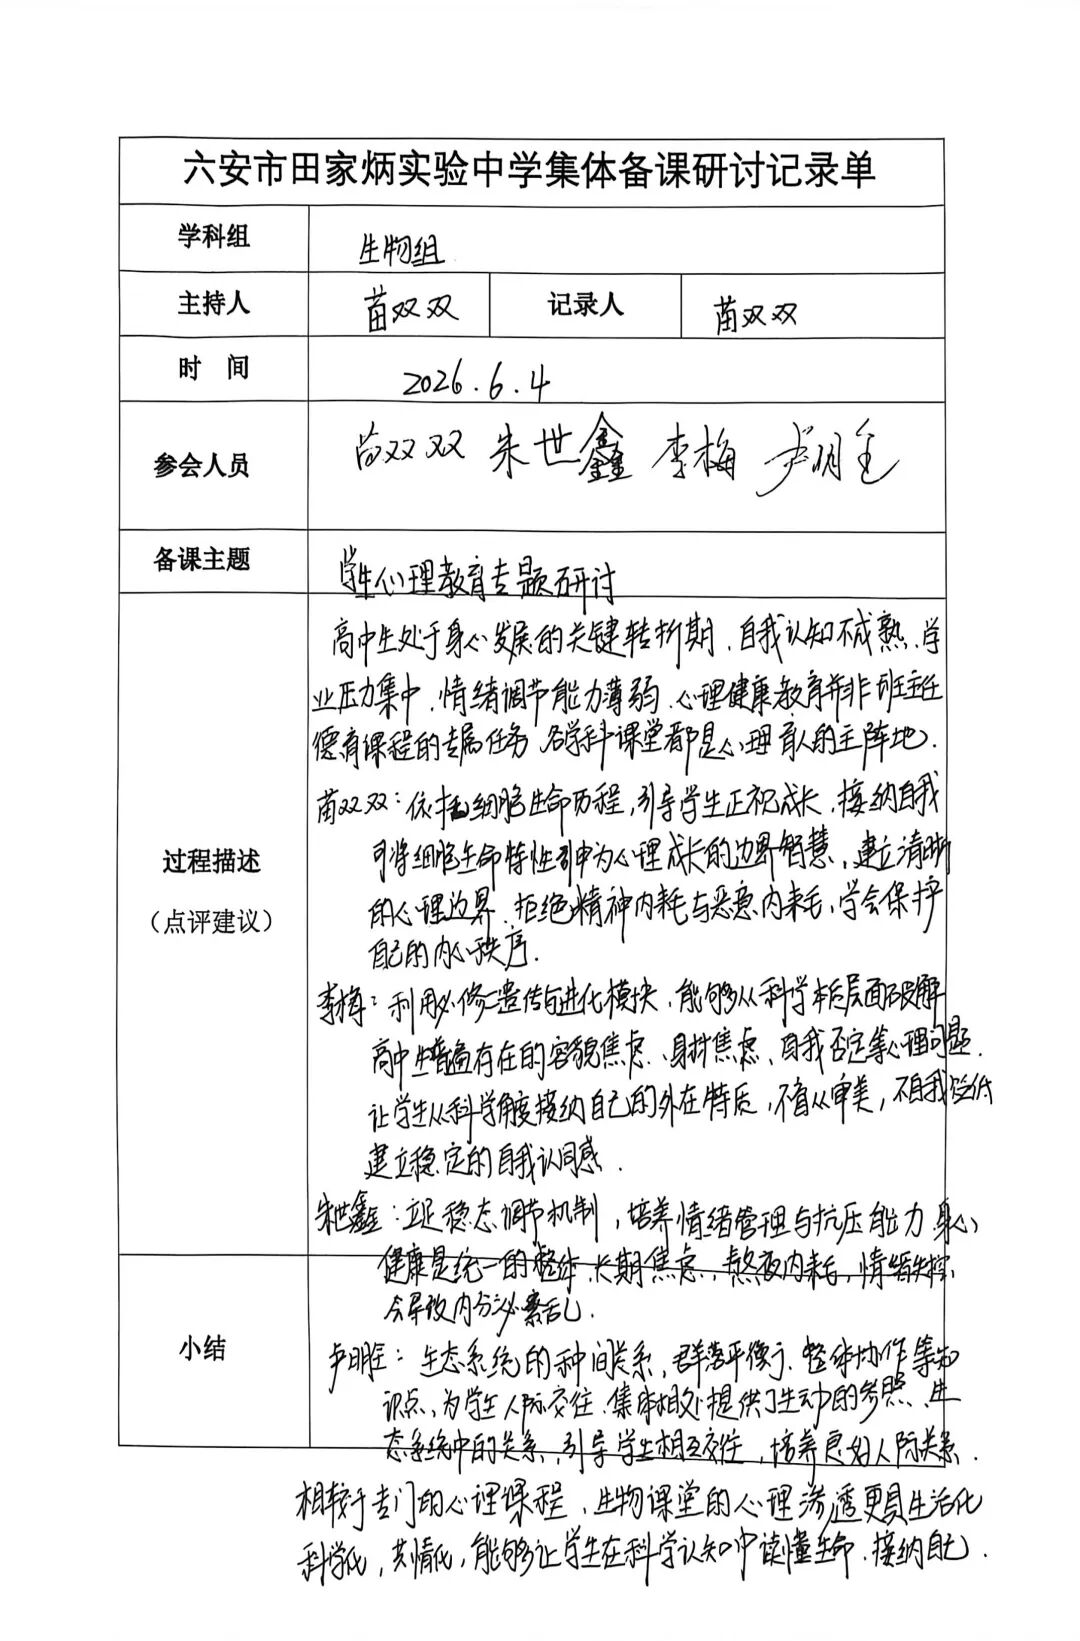 六安市田家炳实验中学集体备课研讨记录单
学科组 生物组
主持人 苗双双 记录人 苗双双
时 间 2026.6.4
参会人员 苗双双 朱世鑫 李梅 卢明全
备课主题 学生心理教育专题研讨
过程描述
（点评建议）
高中生处于身心发展的关键转折期，自我认知不成熟、学
业压力集中，情绪调节能力薄弱，心理健康教育并非班主任
德育课程的专属任务，各学科课堂都是心理育人的主阵地.
苗双双：依托细胞生命历程，引导学生正视成长，接纳自我
可将细胞生命特性引申为心理成长的边界智慧，建立清晰
的心理边界，拒绝精神内耗与恶意内耗，学会保护
自己的内心秩序.
李梅：利用必修二遗传与进化模块，能够从科学本质层面破解
高中生普遍存在的容貌焦虑、身材焦虑、自我否定等心理问题.
让学生从科学角度接纳自己的外在特质，不盲从审美，不自我贬低
建立稳定的自我认同感.
朱世鑫：立足稳态调节机制，培养情绪管理与抗压能力，身心
健康是统一的整体，长期焦虑，熬夜内耗，情绪失控，
会导致内分泌紊乱.
小结
卢明全：生态系统的种间关系，群落平衡，整体协作等知
识点，为学生人际交往、集体相处提供了生动的参照，生
态系统中的关系，引导学生相互交往，培养良好人际关系.
相较于专门的心理课程，生物课堂的心理渗透更具生活化
科学化，共情化，能够让学生在科学认知中读懂生命，接纳自己.